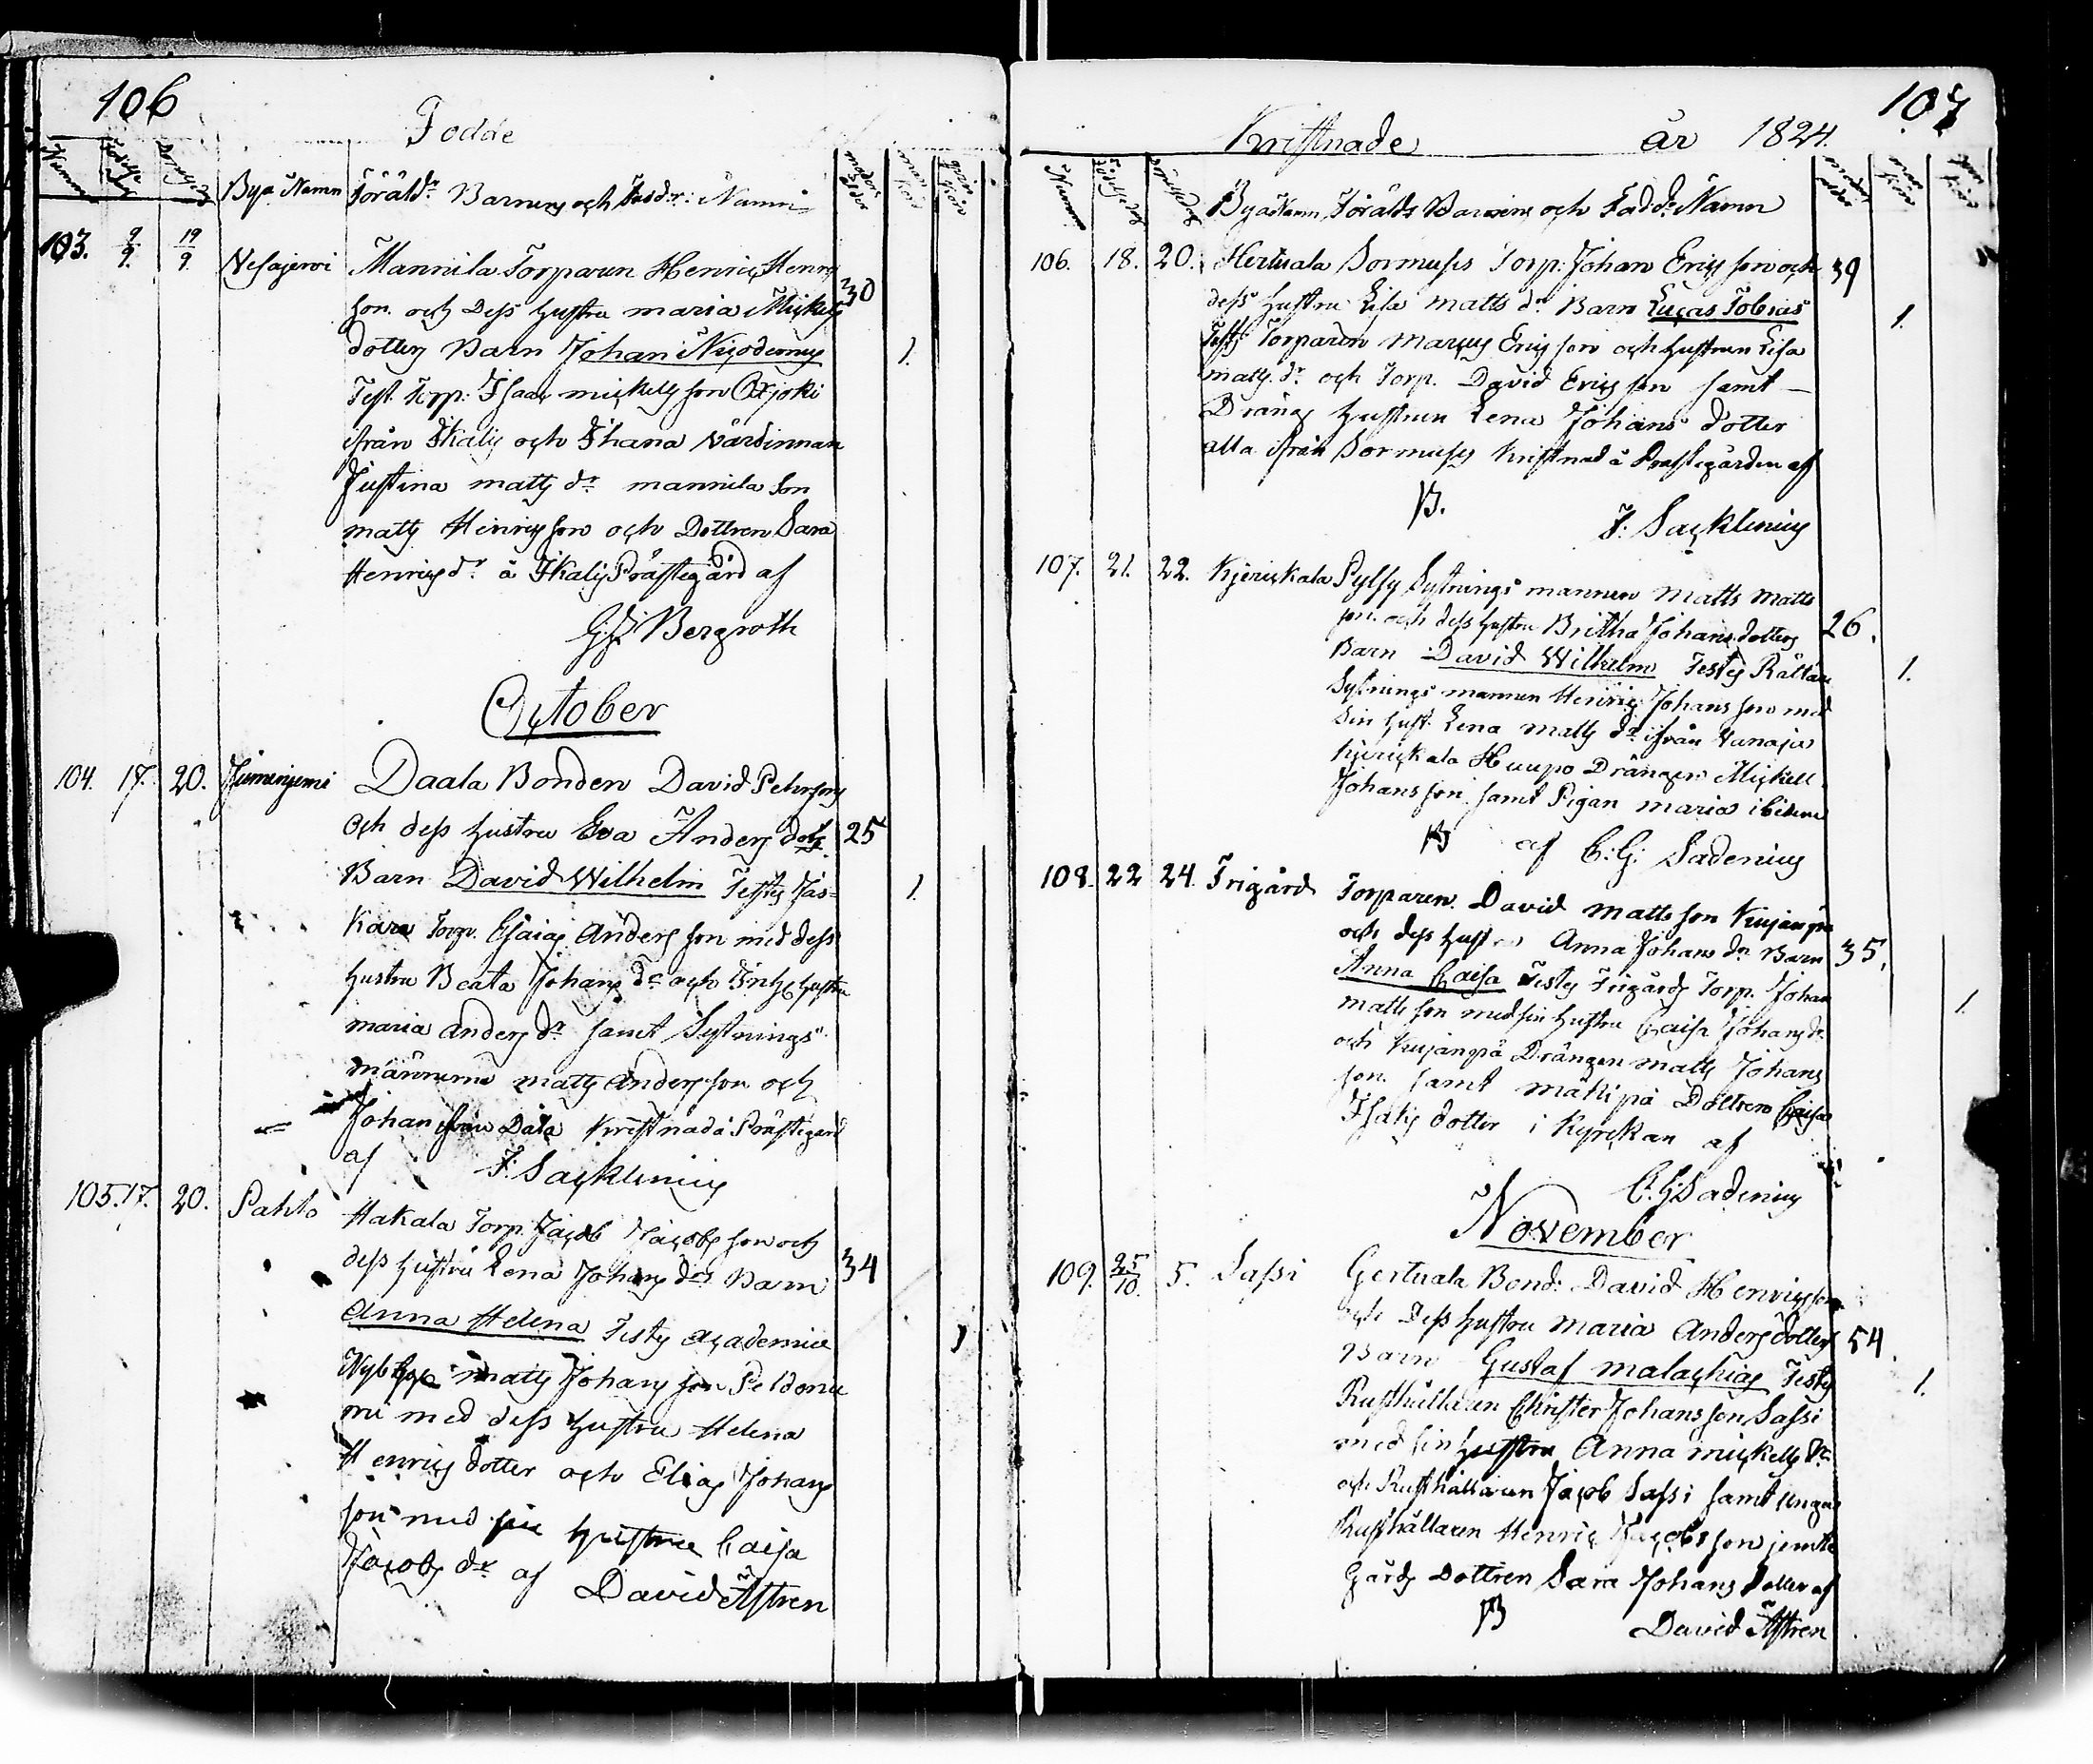 106
Födde
Numro
Födelse Dag
Bya Namn Föräldr Barnens och Fadder: Namn
moders ålder
man kön
qvin kön
103. 9/9. 19/9. Vesajervi Mannila Torparen Henric Henrics
son och Dess hustru maria Mickels 30
dotters Barn Johan Nicodemus 1.
Test. Torp: Isaac mickels son Oxjoki
ifrån Ikalis och Ihana värdinnan
Justina matts dr mannila son
matts Henrics son och Dottren Sara
Henrics dr å Ikalis Prästegård af
Bergroth
October
104. 17. 20. Daala Bonden David Pehrsons
och dess hustru Eva Anders dotr. 25
Barn David Wilhelm Testes Jäs= 1.
kara Torp. Esaias Anders son med dess
hustru Beata Johans dr och Inhs hustru
maria Anders dr samt Sytnings
männerne matts Anders son och
Johan ifrån Dala Kristnad å Prästegård
af J: Sacklenius
105. 17. 20. Pahto Hakala Torp. Jacob Jacobs son och
dess hustru Lena Johans drs Barn 34
Anna Helena Testes academiæ 1
matts Johans son Peldonie
mi med dess hustru Helena
Henrics dotter och Elias Johans
son med sin hustru Caisa
Jacobs dr af David Åstren
107
Kristnade år 1824.
Numro
Födelsedag
Bya Namn, Föräldr Barnens och Fadd: Namn
moders ålder
man kön
qvin kön
106. 18. 20. Hertuala Sormuses Torp: Johan Erics son och 39
dess hustru Lisa matts dr Barn Lucas Tobias 1.
Test: Torparen Marcus Erics son och hustrun Lisa
matts dr och Torp. David Erics son samt
Drängs hustrun Lena Johans dotter
alla ifrån Sormuses kristnad å Prästegården af
B. J. Sacklenius
107. 21. 22. Kjerickala Pylsy Sytnings mannen Matts Matts
son och dess hustru Britha Johans dotters 26.
Barn David Wilhelm Testes Rättari 1.
Sytnings mannen Henric Johans son med
sin hust. Lena matts dr ifrån Vanaja
Kjerickala Huupo Drängen Mickell
Johans son samt Pigan maria ibidem
B af C: G: Sadenius
108. 22 24. Frigård Torparen David matts son Kujanpä
och dess hustru Anna Johans dr Barn 35.
Anna Caisa Testes Frigårds Torp. Johan 1.
matts son med sin hustru Caisa Johans dr
och Kujanpä Drängen matts Johans
son samt mäkipä Dottren Caisa
Isaks dotter i Kyrckan af
C. G: Sadenius
November
109. 25/10. 5. Sassi Gertuala Bond: David Henrics son
och Dess hustru maria Anders dotters 54.
Barn Gustaf malachias Testes 1.
Rusthållaren Christer Johans son Sassi
med sin hustru Anna mickells dr
och Rusthållaren Jacob Sassi samt unga
Rusthållaren Henric Jacobs son jemte
Gårds Dottren Sara Johans dotter af
B David Åstren